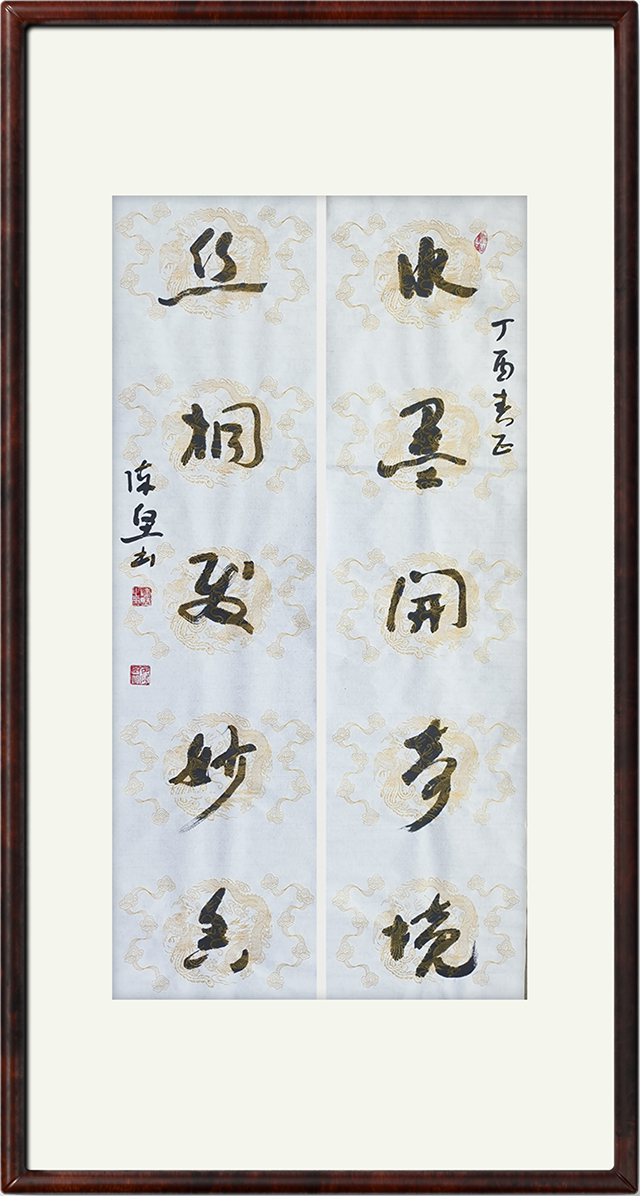 丁酉春正
水墨開奇境
丝桐发妙音
陈书